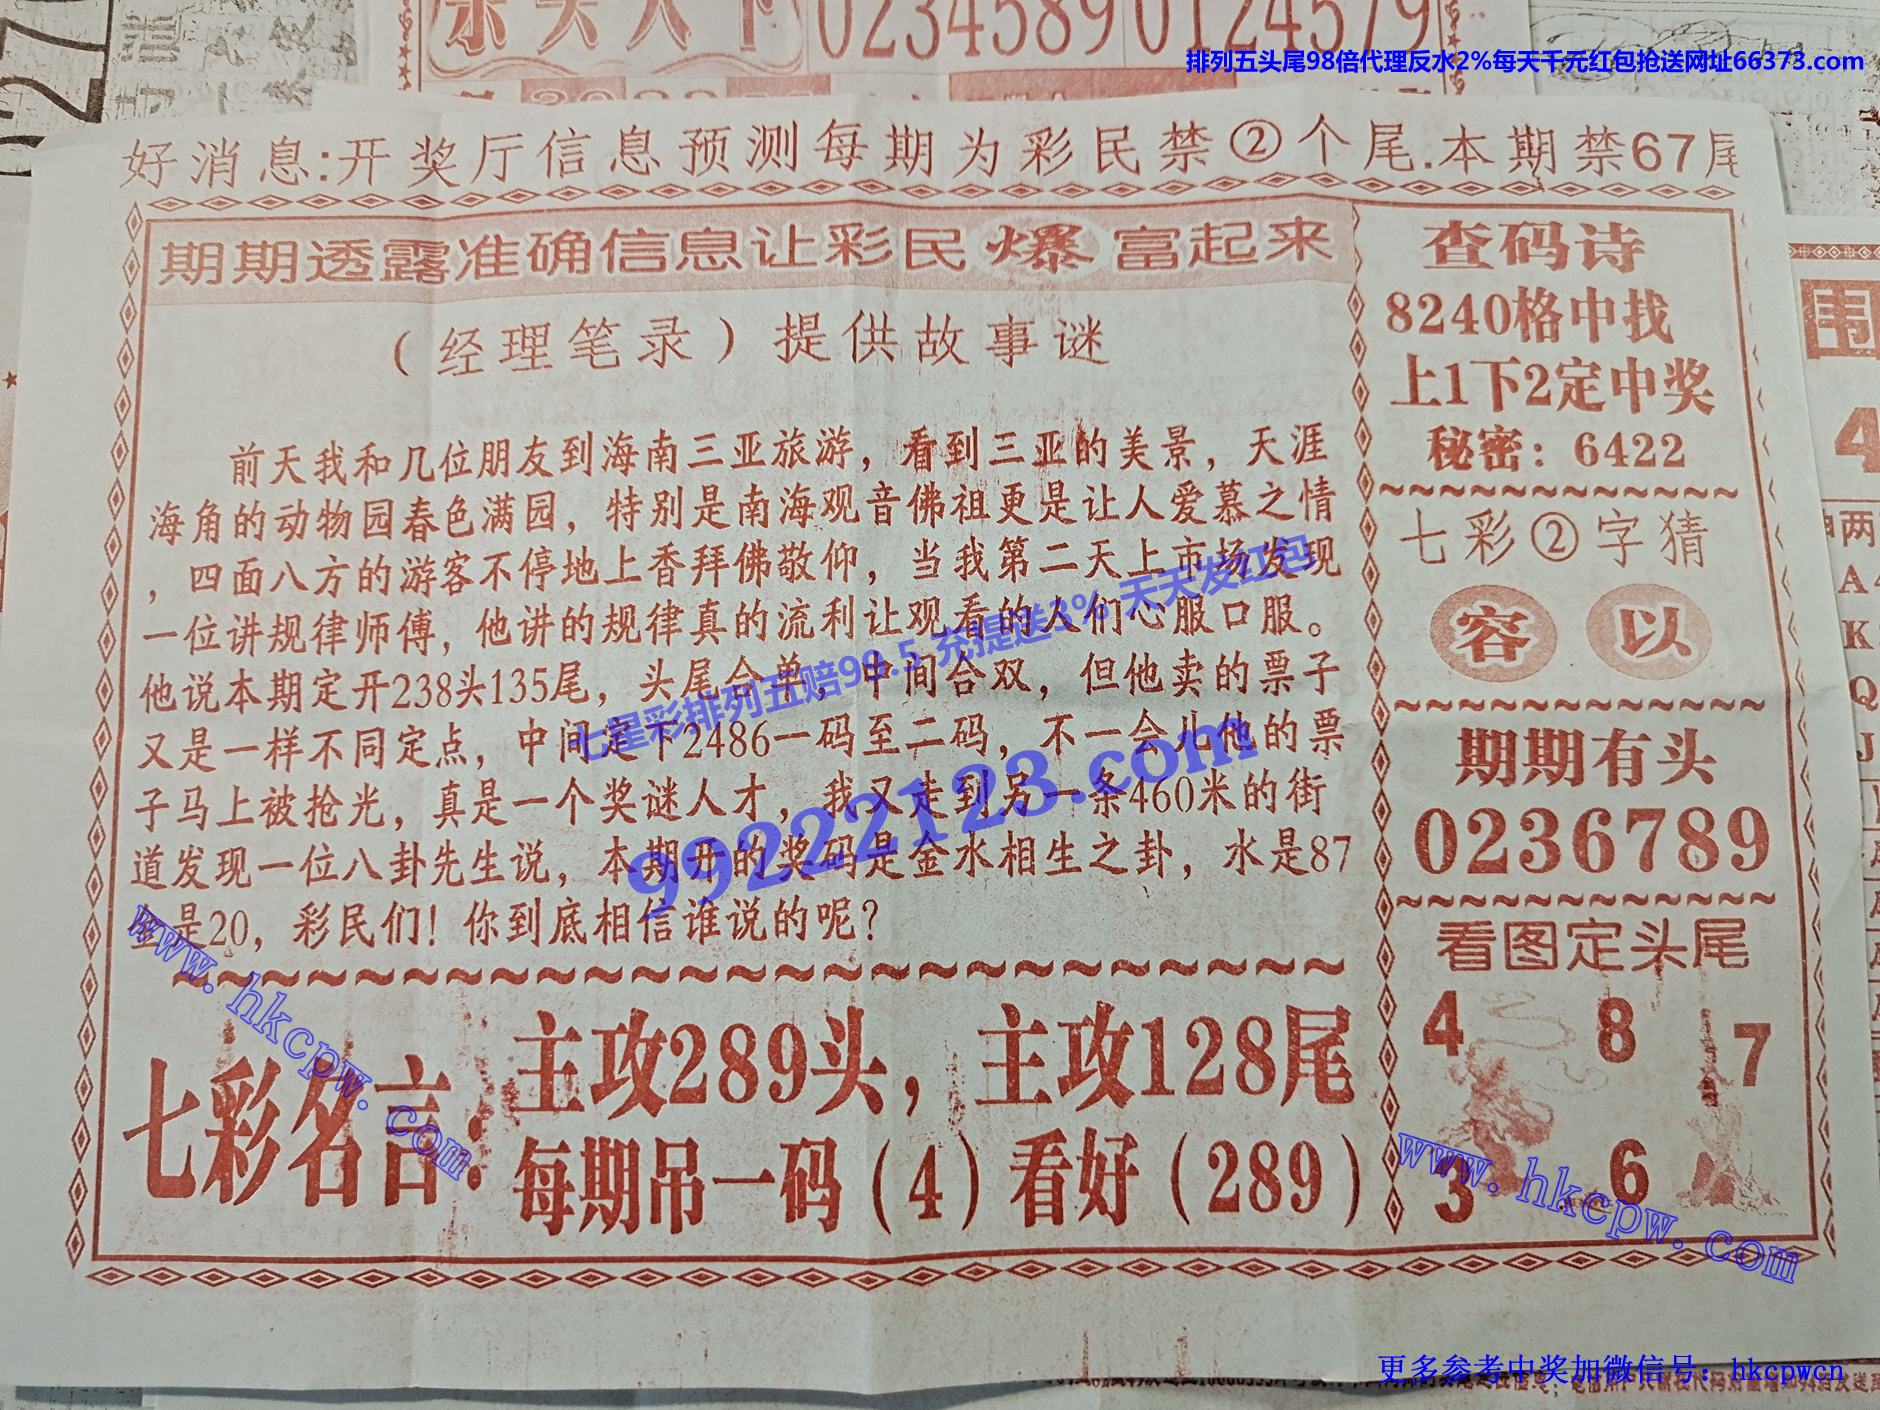 0234589 0124579
排列五头尾98倍代理反水2%每天千元红包抢送网址66373.com
好消息:开奖厅信息预测每期为彩民禁②个尾.本期禁67尾
期期透露准确信息让彩民爆富起来
（经理笔录）提供故事谜
前天我和几位朋友到海南三亚旅游，看到三亚的美景，天涯
海角的动物园春色满园，特别是南海观音佛祖更是让人爱慕之情
，四面八方的游客不停地上香拜佛敬仰，当我第二天上市场发现
一位讲规律师傅，他讲的规律真的流利让观看的人们心服口服。
他说本期定开238头135尾，头尾合单，中间合双，但他卖的票子
又是一样不同定点，中间定下2486一码至二码，不一会儿他的票
子马上被抢光，真是一个奖谜人才，我又走到另一条460米的街
道发现一位八卦先生说，本期开的奖码是金水相生之卦，水是87
金是20，彩民们！你到底相信谁说的呢？
七彩名言：
主攻289头，主攻128尾
每期吊一码（4）看好（289）
查码诗
8240格中找
上1下2定中奖
秘密：6422
七彩②字猜
容 以
期期有头
0236789
看图定头尾
4 8 7
3 6
围
4
两
A
K
Q
J
七星彩排列五赔99.5 充提送3% 天天发红包
99222123.com
www.hkcpw.com
www.hkcpw.com
更多参考中奖加微信号：hkcpwcn